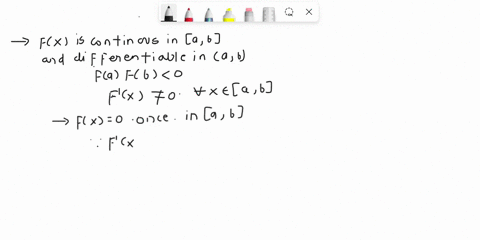 → F(x) is continous in [a,b]
and differentiable in (a,b)
F(a) F(b) < 0
F'(x) ≠ 0 ∀ x ∈ [a,b]
→ F(x) = 0 once in [a,b]
∵ F'(x